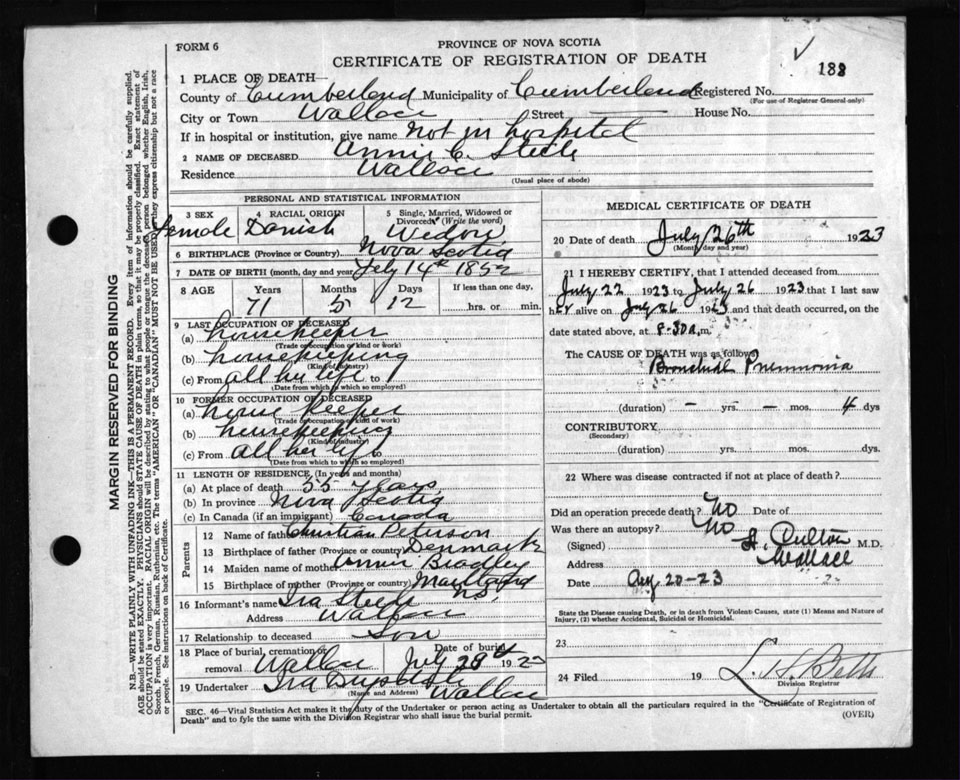 FORM 6
PROVINCE OF NOVA SCOTIA
CERTIFICATE OF REGISTRATION OF DEATH
188
1 PLACE OF DEATH—
County of Cumberland Municipality of Cumberland Registered No.
(For use of Registrar General only)
City or Town Wallace Street House No.
If in hospital or institution, give name Not in hospital
2 NAME OF DECEASED Annie C. Steele
Residence Wallace
(Usual place of abode)
PERSONAL AND STATISTICAL INFORMATION
3 SEX Female
4 RACIAL ORIGIN Danish
5 Single, Married, Widowed or Divorced (Write the word) Widow
6 BIRTHPLACE (Province or Country) Nova Scotia
7 DATE OF BIRTH (month, day and year) Feby 14th 1852
8 AGE Years Months Days If less than one day,
71 5 12 hrs. or min.
9 LAST OCCUPATION OF DECEASED
(a) housekeeper
(Trade or occupation or kind of work)
(b) housekeeping
(Kind of industry)
(c) From all her life to
(Date from which to which so employed)
10 FORMER OCCUPATION OF DECEASED
(a) house keeper
(Trade or occupation or kind of work)
(b) housekeeping
(Kind of industry)
(c) From all her life
(Date from which to which so employed)
11 LENGTH OF RESIDENCE (In years and months)
(a) At place of death 55 years
(b) In province Nova Scotia
(c) In Canada (if an immigrant) Canada
Parents
12 Name of father Christian Peterson
13 Birthplace of father (Province or country) Denmark
14 Maiden name of mother Annie Bradley
15 Birthplace of mother (Province or country)
N.S.
16 Informant's name Ira Steele
Address Wallace
17 Relationship to deceased Son
18 Place of burial, cremation or removal Wallace Date of burial July 28th 1923
19 Undertaker Ira Wallace
(Name and Address)
MEDICAL CERTIFICATE OF DEATH
20 Date of death July 26th 1923
(Month, day and year)
21 I HEREBY CERTIFY, that I attended deceased from
July 22 1923 to July 26 1923 that I last saw
her alive on July 26 1923 and that death occurred, on the
date stated above, at 8-30 a.m.
The CAUSE OF DEATH was as follows
Bronchial Pneumonia
(duration) — yrs. — mos. 4 dys
CONTRIBUTORY
(Secondary)
(duration) yrs. mos. dys
22 Where was disease contracted if not at place of death?
Did an operation precede death? No Date of
Was there an autopsy? No
(Signed) M.D.
Address Wallace
Date Aug 20-23
State the Disease causing Death, or in death from Violent Causes, state (1) Means and Nature of
Injury, (2) whether Accidental, Suicidal or Homicidal.
23
24 Filed 19
Division Registrar
SEC. 46—Vital Statistics Act makes it the duty of the Undertaker or person acting as Undertaker to obtain all the particulars required in the "Certificate of Registration of
Death" and to fyle the same with the Division Registrar who shall issue the burial permit.
(OVER)
MARGIN RESERVED FOR BINDING
N.B.—WRITE PLAINLY WITH UNFADING INK—THIS IS A PERMANENT RECORD. Every item of information should be carefully supplied.
AGE should be stated EXACTLY. PHYSICIANS should STATE CAUSE OF DEATH in plain terms, so that it may be properly classified. Exact statement of
OCCUPATION is very important. RACIAL ORIGIN will be described by stating to what people or tongue the deceased person belonged whether English, Irish,
Scotch, French, German, Russian, Ruthenian, etc. The terms "AMERICAN" OR "CANADIAN" MUST NOT BE USED as they express citizenship but not a race
or people. See instructions on back of Certificate.